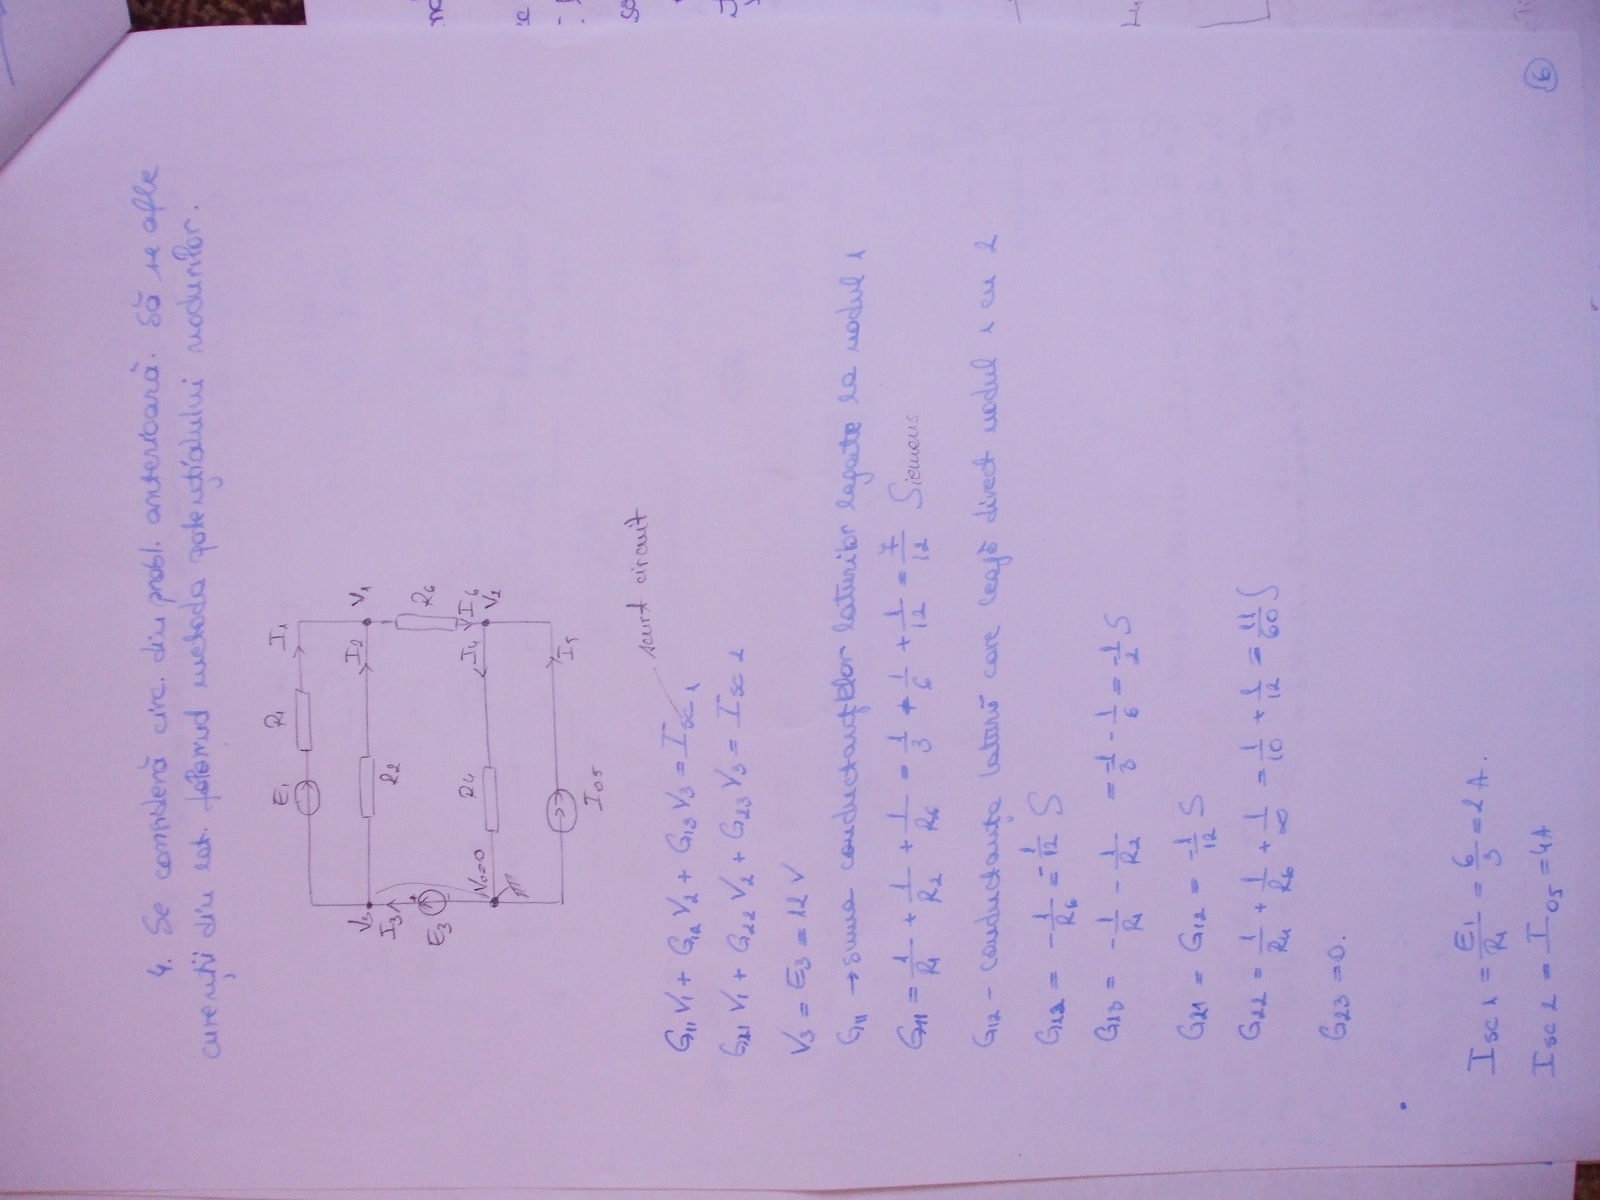 4. Se consideră circ. din probl. anterioară. Să se afle
curenții din lat. folosind metoda potențialului nodurilor.
E1 R1 I1
V3 I2 V1
I3 R2
E3 R6
V0=0 R4 I4 I6
V2
I5
I05
scurt circuit
G11 V1 + G12 V2 + G13 V3 = Isc 1
G21 V1 + G22 V2 + G23 V3 = Isc 2
V3 = E3 = 12 V
G11 → suma conductanțelor laturilor legate la nodul 1
G11 = 1/R1 + 1/R2 + 1/R6 = 1/3 + 1/6 + 1/12 = 7/12 Siemens
G12 - conductanța latură care leagă direct nodul 1 cu 2
G12 = -1/R6 = -1/12 S
G13 = -1/R1 - 1/R2 = -1/3 - 1/6 = -1/2 S
G21 = G12 = -1/12 S
G22 = 1/R4 + 1/R6 + 1/∞ = 1/10 + 1/12 = 11/60 S
G23 = 0.
Isc 1 = E1/R1 = 6/3 = 2 A.
Isc 2 = I05 = 4A
6